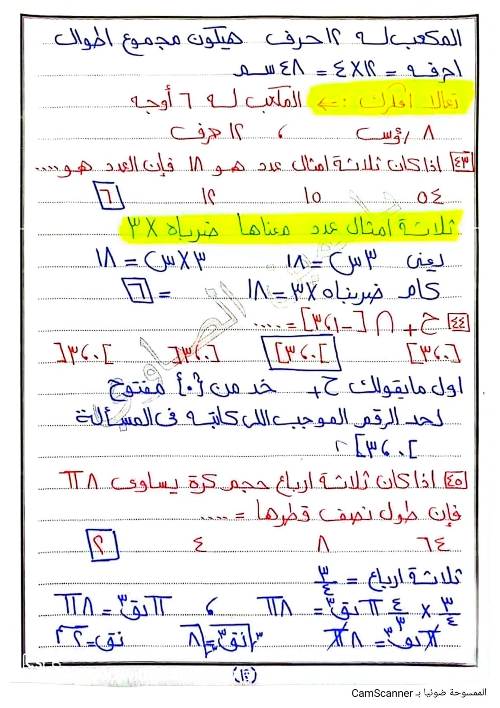 المكعب له ١٢ حرف هيكون مجموع اطوال
احرفه = ١٢ × ٤ = ٤٨ سم
تعالا افكرك :- ← المكعب له ٦ أوجه
٨ رؤس ، ١٢ حرف
٤٣ اذا كان ثلاثة امثال عدد هو ١٨ فإن العدد هو ....
٥٤ ١٥ ١٢ ٦
ثلاثة امثال عدد معناها ضرباه × ٣
يعنى ٣س = ١٨ ٣ × س = ١٨
كام ضربناه × ٣ = ١٨ = ٦
٤٤ ح+ ∩ [-٣،١] = ....
[٣،٠] ]٣،٠] [٣،٠[ ]٣،٠[
اول مايقولك ح+ خد من {٠} مفتوح
لحد الرقم الموجب اللى كاتبه فى المسألة
]٣،٠]
٤٥ اذا كان ثلاثة ارباع حجم كرة يساوى ٨π
فإن طول نصف قطرها = ....
٦٤ ٨ ٤ ٢
ثلاثة ارباع = ٣/٤
٣/٤ × ٤/٣ π نق٣ = ٨π ، π نق٣ = ٨π
π نق٣ = ٨π ٣√نق٣ = ٣√٨ نق = ٢
(١٢)
الممسوحة ضوئيا بـ CamScanner